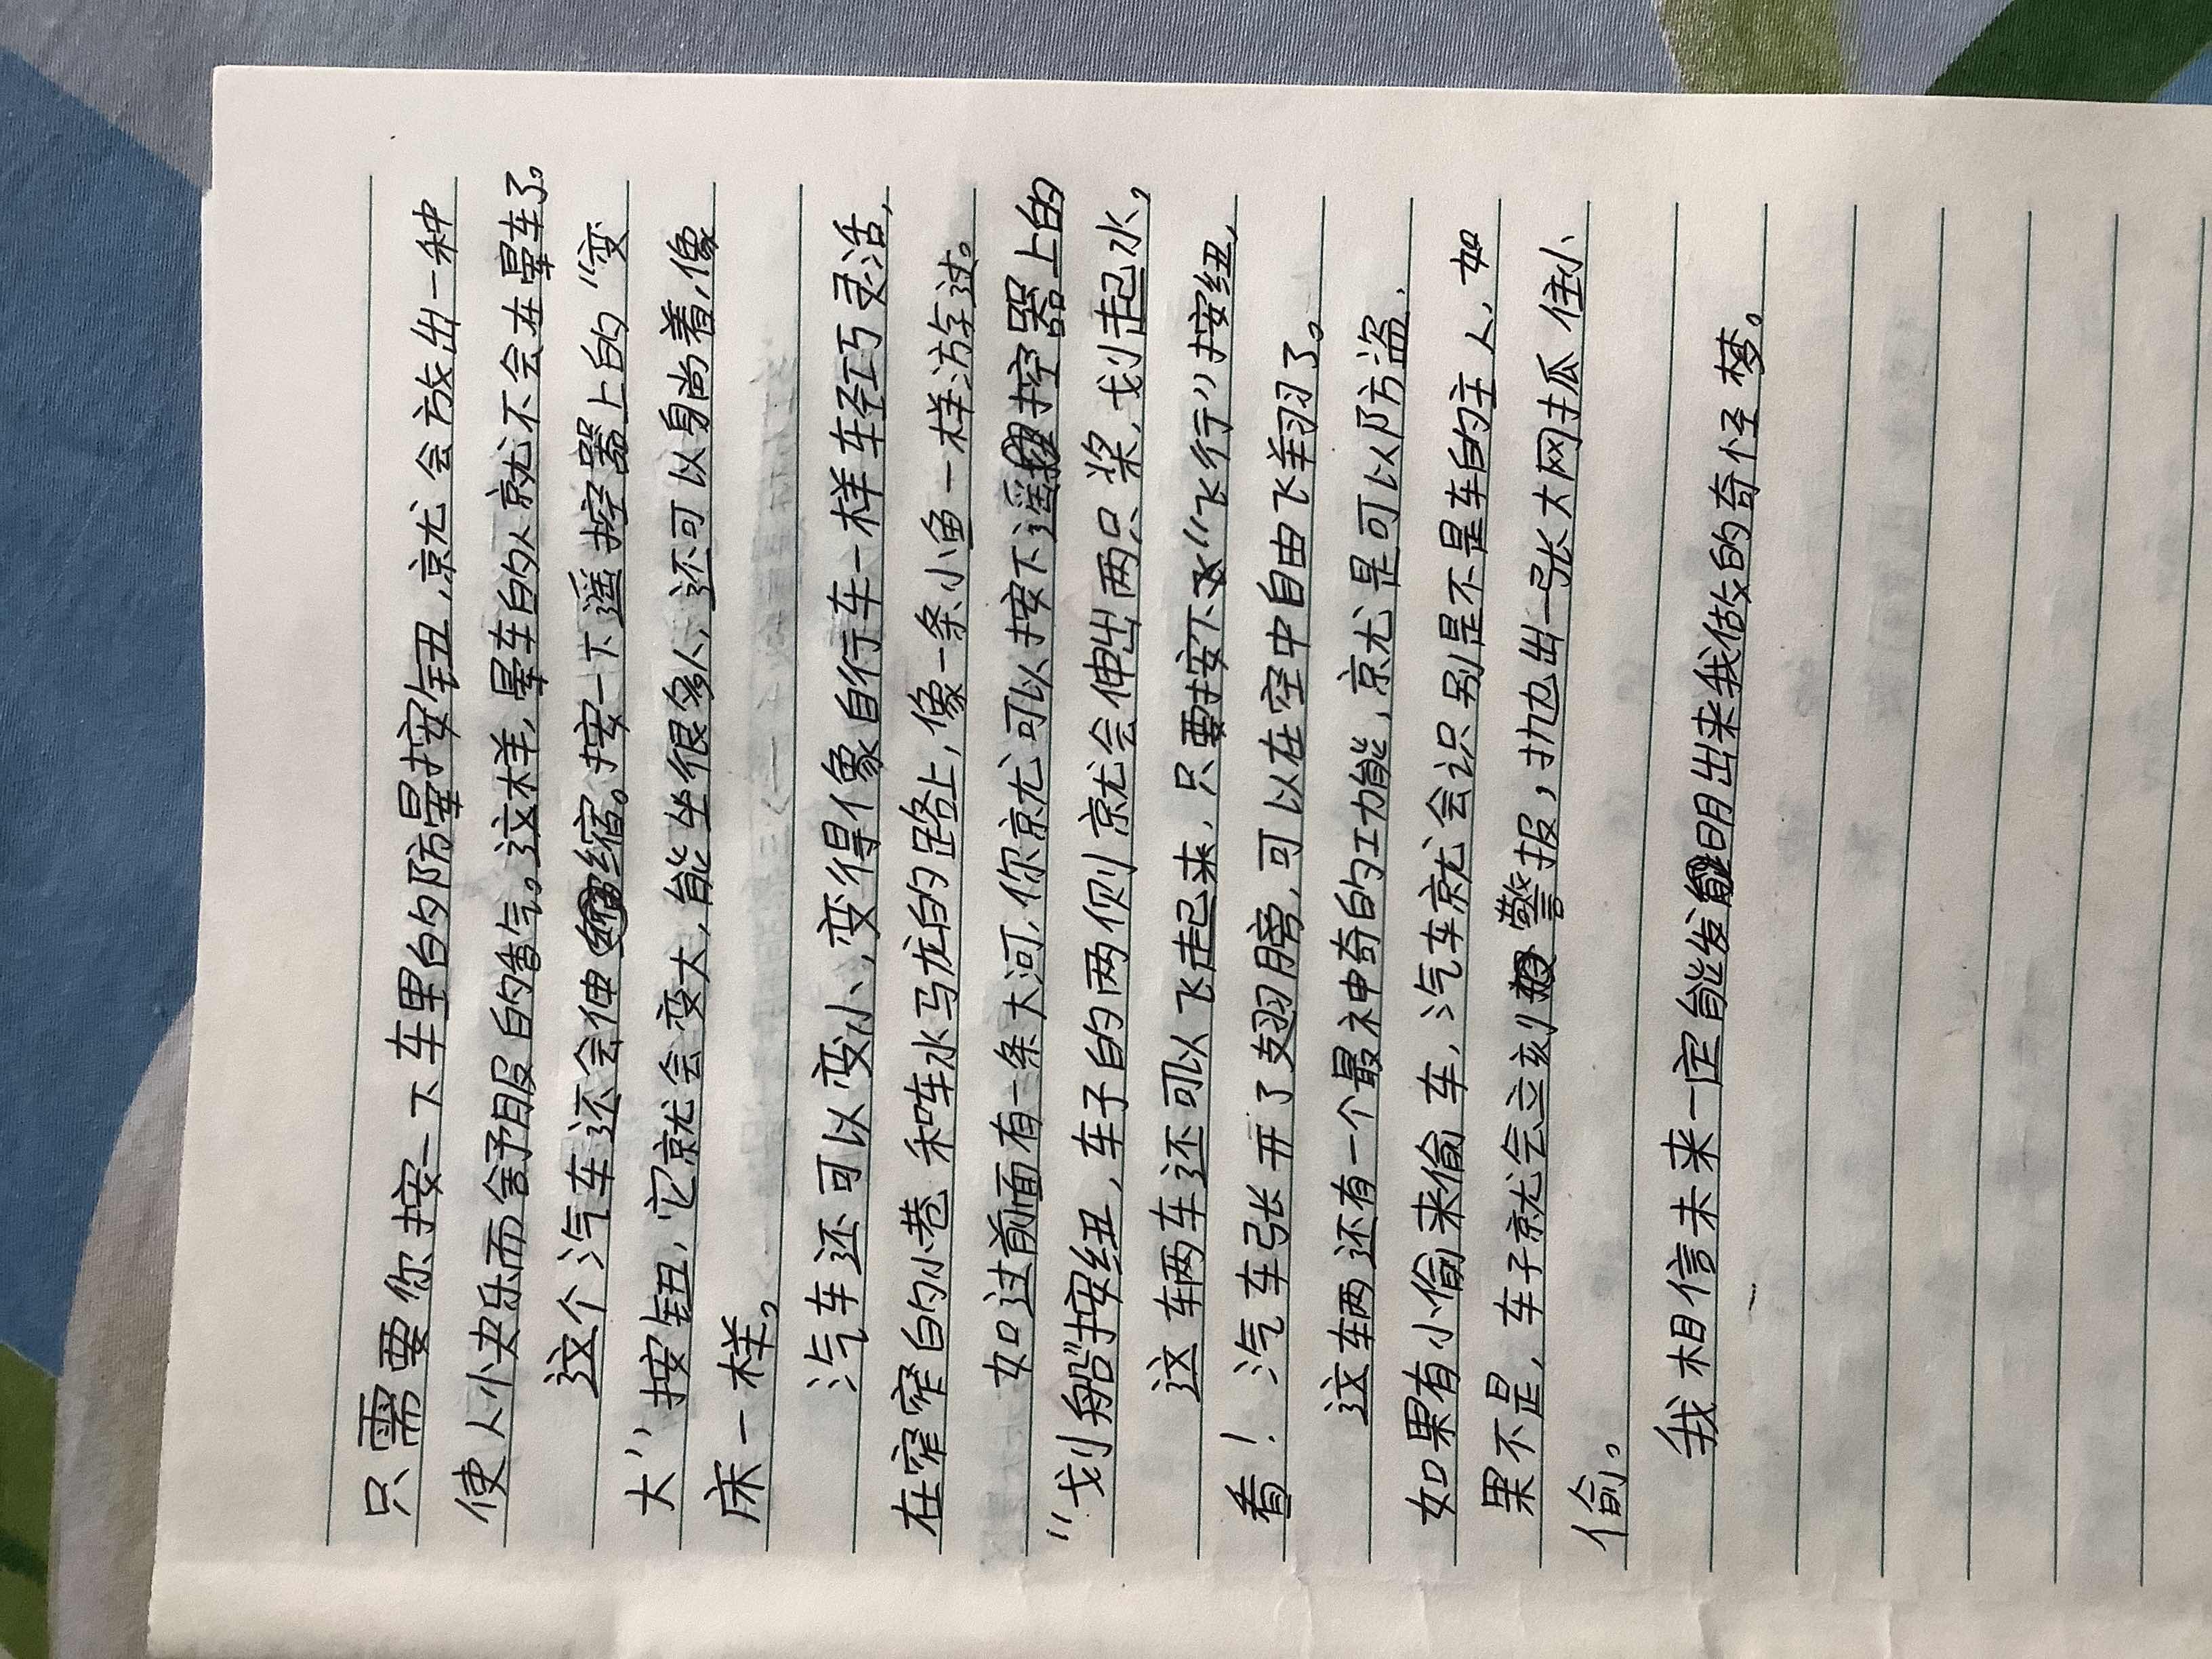 只需要你按一下车里的防晕按钮，就会放出一种
使人快乐而舒服的香气。这样，晕车的人就不会在晕车了。
这个汽车还会伸缩。按一下遥控器上的“变
大”按钮，它就会变大，能坐很多人，还可以躺着，像
床一样。
汽车还可以变小，变得像自行车一样轻巧灵活，
在窄窄的小巷和车水马龙的路上，像一条小鱼一样游过。
如过前面有一条大河，你就可以按下遥控器上的
“划船”按纽，车子的两侧就会伸出两只桨，划起水。
这辆车还可以飞起来，只要按下“飞行”按纽，
看！汽车张开了翅膀，可以在空中自由飞翔了。
这辆还有一个最神奇的功能，就是可以防盗，
如果有小偷来偷车，汽车就会识别是不是车的主人，如
果不是，车子就会立刻警报，抛出一张大网抓住小
偷。
我相信未来一定能发明出来我做的奇怪梦。